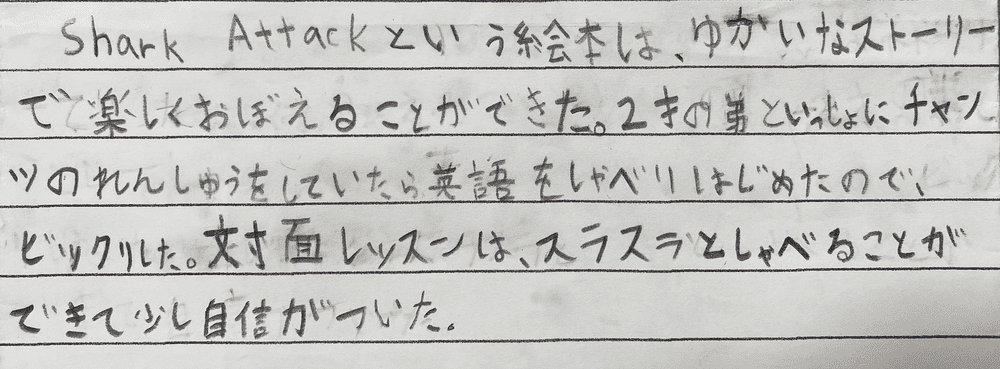 Shark Attackという絵本は、ゆかいなストーリー
で楽しくおぼえることができた。2才の弟といっしょにチャン
ツのれんしゅうをしていたら英語をしゃべりはじめたので、
ビックリした。対面レッスンは、スラスラとしゃべることが
できて少し自信がついた。